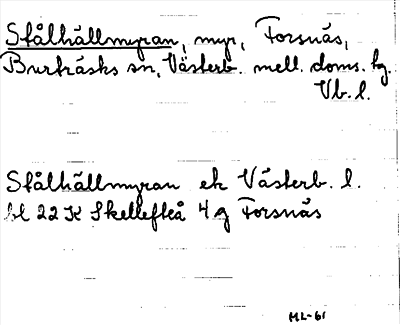 Stålhällmyran, myr, Forsnäs,
Burträsks sn, Västerb. mell. doms. hg.
Vb. l.
Stålhällmyran ek Västerb. l.
bl 22 K Skellefteå 4 g Forsnäs
ML-61